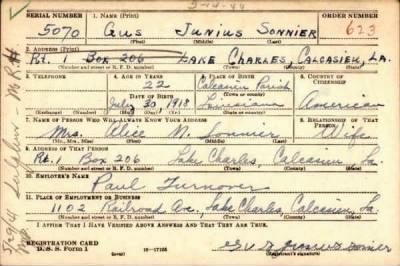 5-4-44
SERIAL NUMBER 1. NAME (Print) ORDER NUMBER
5070 Gus Junius Sonnier 623
(First) (Middle) (Last)
2. ADDRESS (Print)
Rt. 1 Box 206 Lake Charles, Calcasieu, La.
(Number and street or R. F. D. number) (Town) (County) (State)
3. TELEPHONE 4. AGE IN YEARS 5. PLACE OF BIRTH 6. COUNTRY OF CITIZENSHIP
22 Calcasieu Parish
DATE OF BIRTH (Town or county)
July 30, 1918 Louisiana American
(Exchange) (Number) (Mo.) (Day) (Yr.) (State or country)
7. NAME OF PERSON WHO WILL ALWAYS KNOW YOUR ADDRESS 8. RELATIONSHIP OF THAT PERSON
Mrs. Alice M. Sonnier Wife
(Mr., Mrs., Miss) (First) (Middle) (Last)
9. ADDRESS OF THAT PERSON
Rt. 1 Box 206 Lake Charles, Calcasieu, La.
(Number and street or R. F. D. number) (Town) (County) (State)
10. EMPLOYER'S NAME
Paul Turnover
11. PLACE OF EMPLOYMENT OR BUSINESS
1102 Railroad Ave., Lake Charles, Calcasieu, La.
(Number and street or R. F. D. number) (Town) (County) (State)
I AFFIRM THAT I HAVE VERIFIED ABOVE ANSWERS AND THAT THEY ARE TRUE.
REGISTRATION CARD
D. S. S. Form 1 16-17105 Sonnier